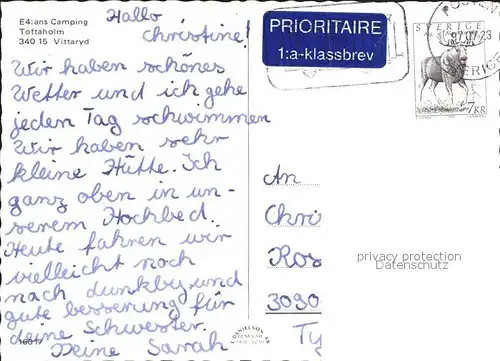 E4:ans Camping
Toftaholm
340 15 Vittaryd
Hallo
Christine!
Wir haben schönes
Wetter und ich gehe
jeden Tag schwimmen
Wir haben sehr
kleine Hütte. Ich
ganz oben in un-
serem Hochbed.
Heute fahren wir
vielleicht noch
nach dunkby und
gute besserung für
deine Schwester.
Deine Sarrah
16017
PRIORITAIRE
1:a-klassbrev
SVERIGE
7KR
An
Chri
Ros
3090
Ty
privacy protection
Datenschutz